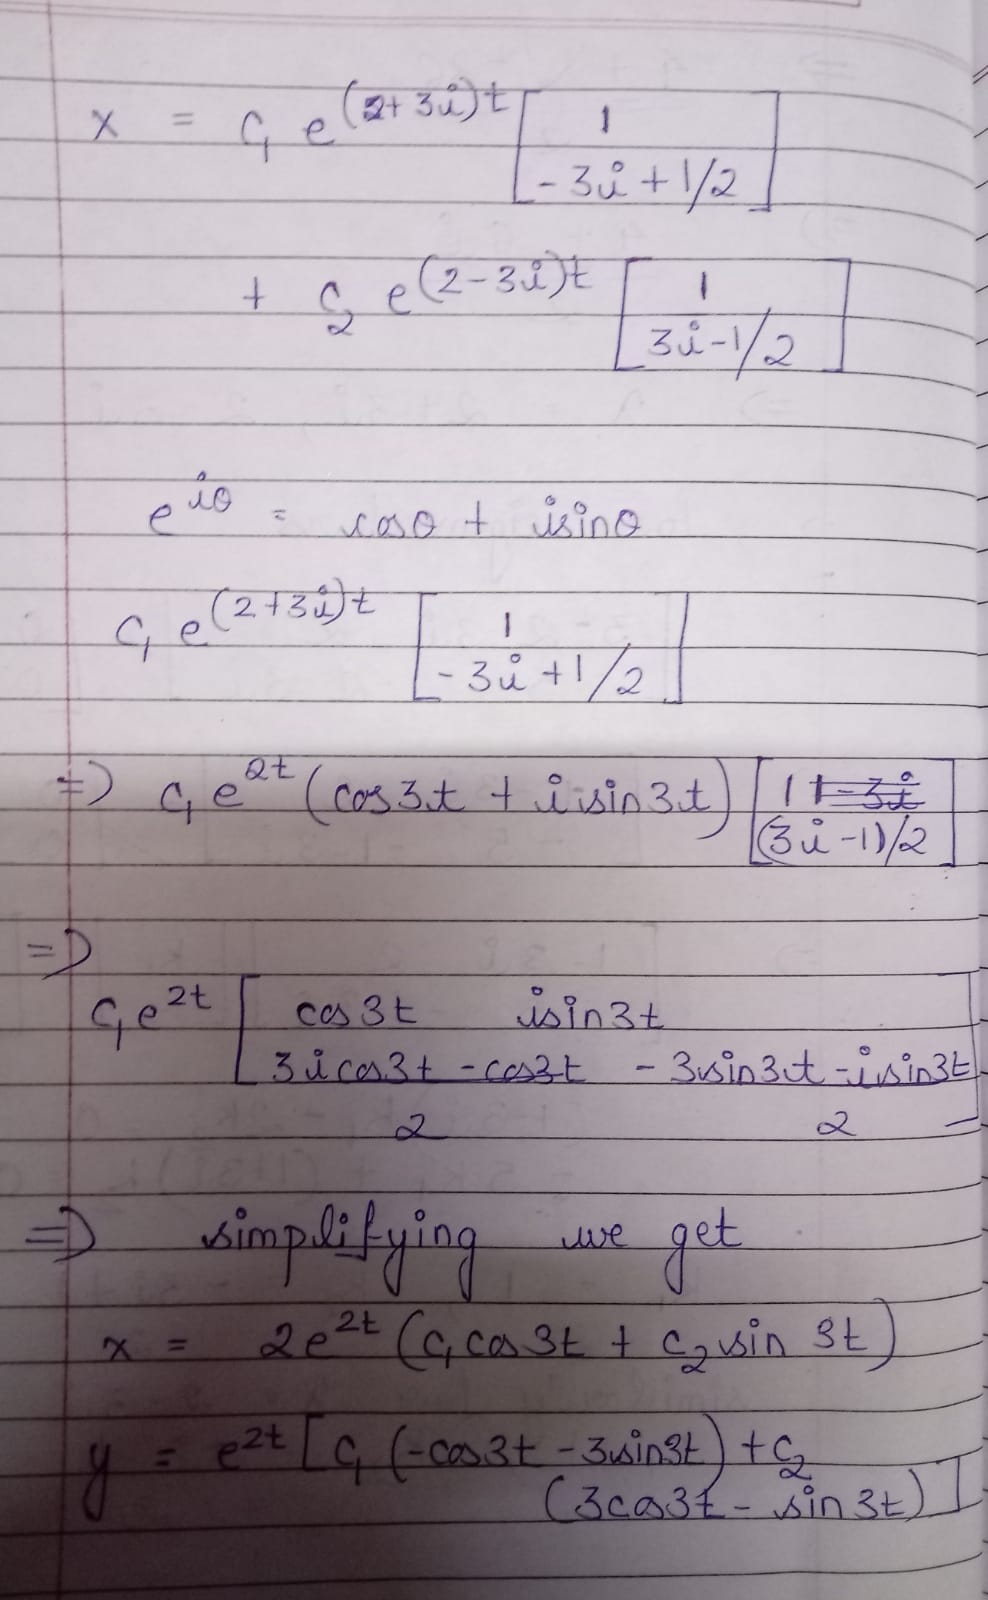 x = C₁ e^(2+3i)t [ 1
-3i + 1/2 ]
+ C₂ e^(2-3i)t [ 1
3i-1/2 ]
e^iθ = cosθ + isinθ
C₁ e^(2+3i)t [ 1
-3i+1/2 ]
⇒) C₁ e^2t (cos3t + i sin3t) [ 1
(3i-1)/2 ]
⇒
C₁e^2t [ cos3t isin3t
3icos3t - cos3t - 3sin3t - isin3t
2 2 ]
⇒ simplifying we get
x = 2e^2t (C₁cos3t + C₂sin 3t)
y = e^2t [C₁ (-cos3t - 3sin3t) + C₂
(3cos3t - sin3t) ]